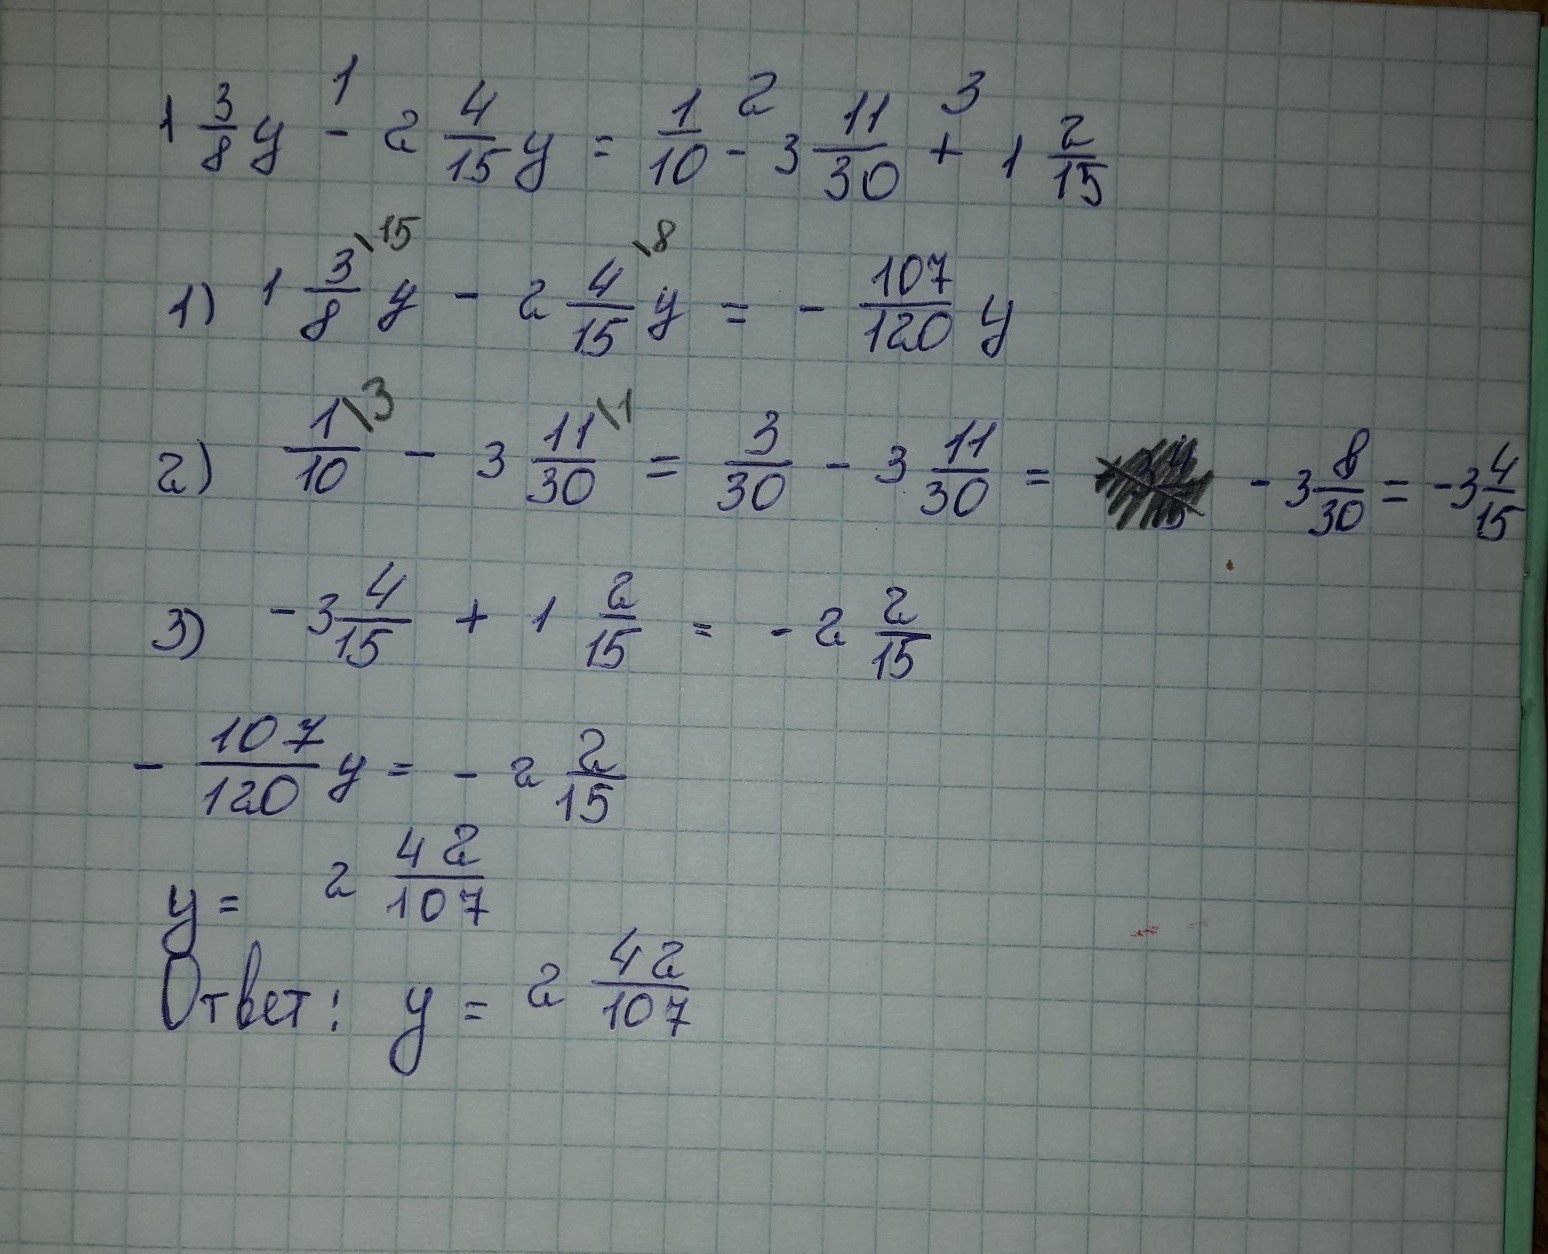 1 2 3
1 3/8 y - 2 4/15 y = 1/10 - 3 11/30 + 1 2/15
1) 1 3/8 \15 y - 2 4/15 \8 y = - 107/120 y
2) 1/10 \3 - 3 11/30 \1 = 3/30 - 3 11/30 = - 3 8/30 = - 3 4/15
3) - 3 4/15 + 1 2/15 = - 2 2/15
- 107/120 y = - 2 2/15
y = 2 42/107
Ответ: y = 2 42/107